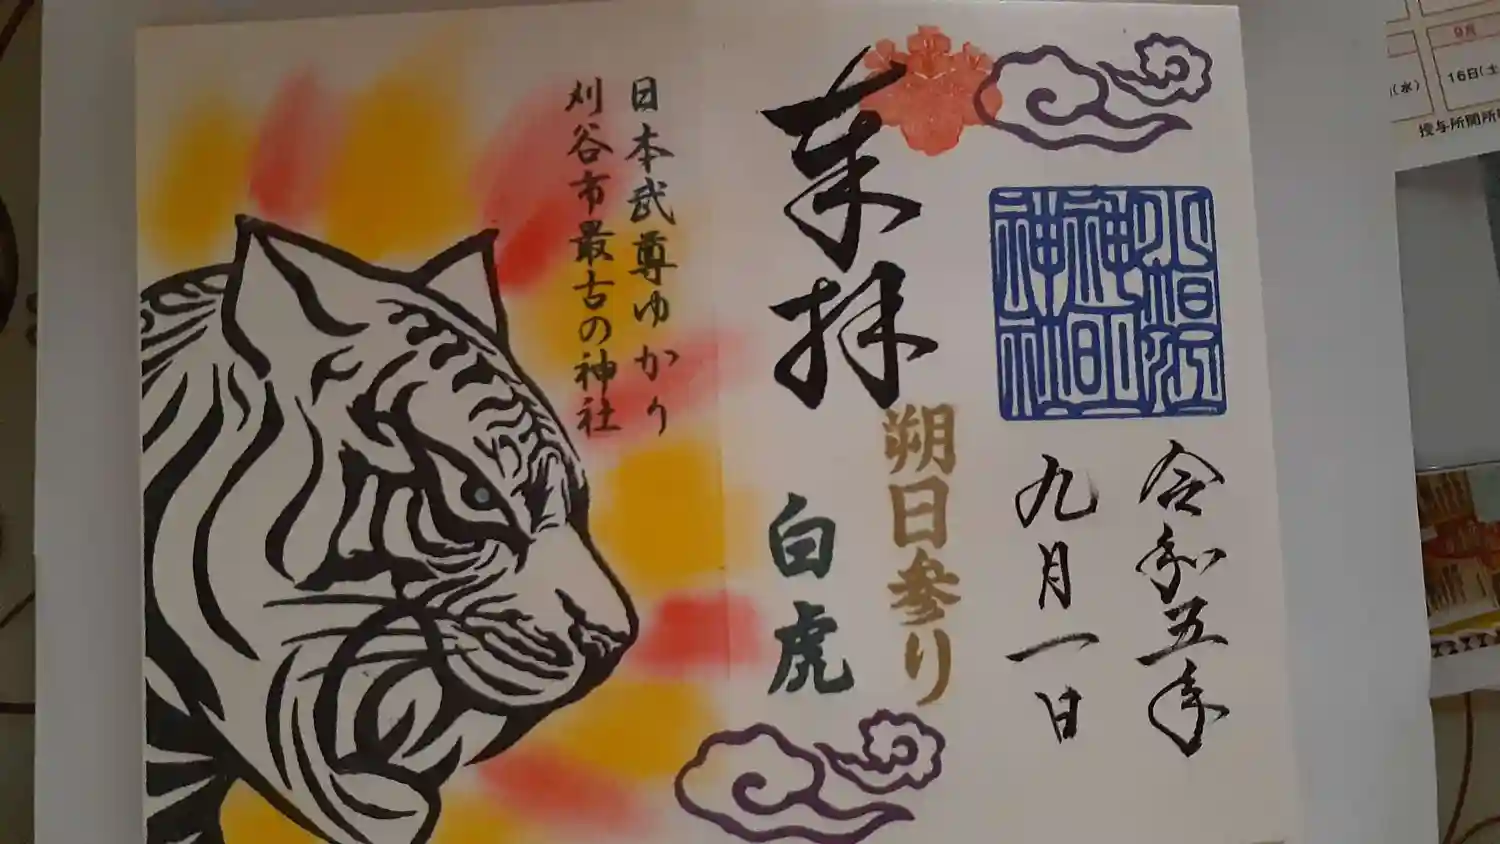 小垣江
神明
神社
令和五年
九月一日
奉拝
朔日参り
白虎
日本武尊ゆかり
刈谷市最古の神社
9月
(水)
16日(土
授与所開所